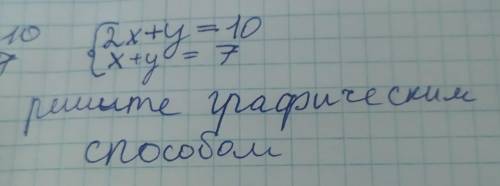 10 {2x+y=10
7 {x+y = 7
решите графическим
способом